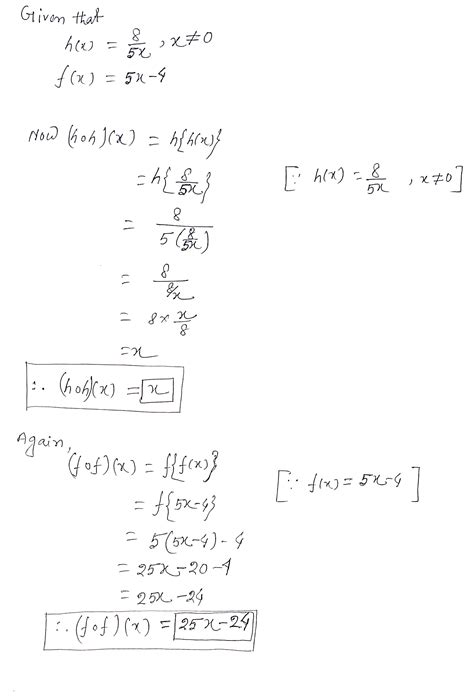 Given that
h(x) = 8/5x , x≠0
f(x) = 5x-4
Now (hoh)(x) = h{h(x)}
= h{8/5x} [∵ h(x) = 8/5x , x≠0]
= 8/5(8/5x)
= 8/8/x
= 8 × x/8
= x
∴ (hoh)(x) = x
Again,
(fof)(x) = f{f(x)}
= f{5x-4} [∵ f(x) = 5x-4]
= 5(5x-4) - 4
= 25x-20-4
= 25x-24
∴ (fof)(x) = 25x-24